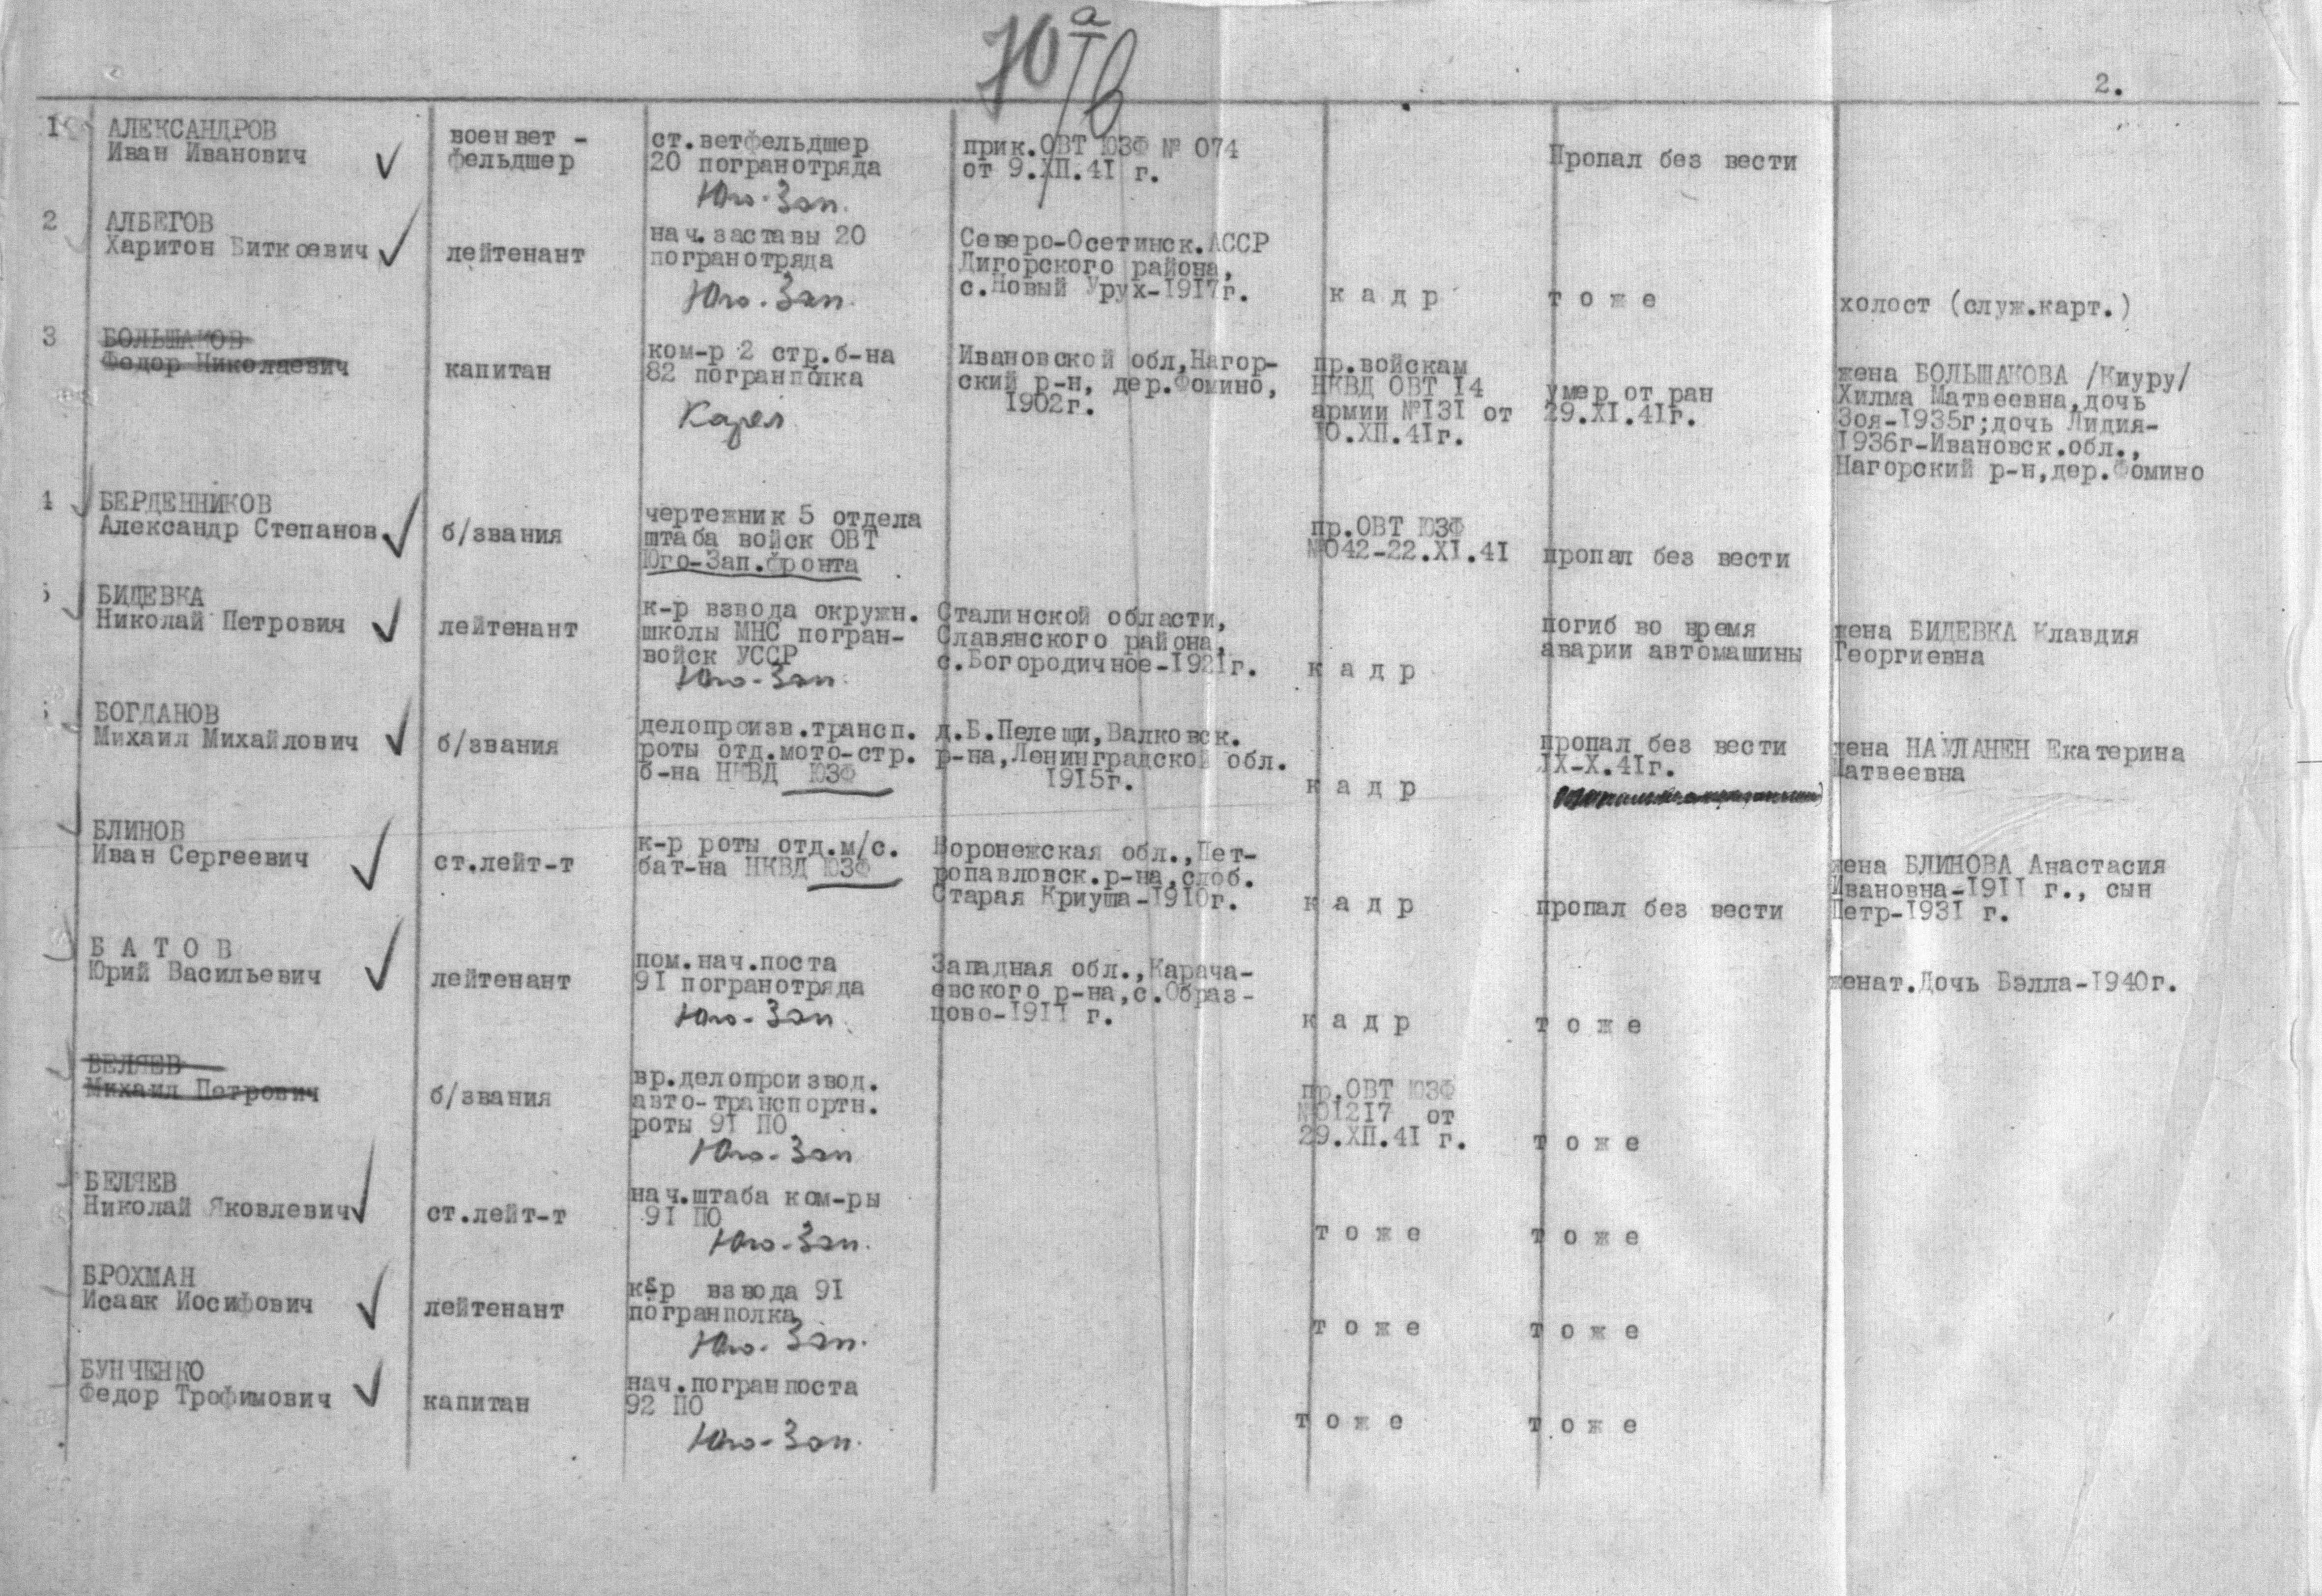 10 а/в
2.
1
АЛЕКСАНДРОВ
Иван Иванович
военвет -
фельдшер
ст.ветфельдшер
20 погранотряда
Юго-Зап.
прик.ОВТ ЮЗФ № 074
от 9.ХП.41 г.
Пропал без вести
2
АЛБЕГОВ
Харитон Биткоевич
лейтенант
нач.заставы 20
погранотряда
Юго-Зап.
Северо-Осетинск.АССР
Дигорского района,
с.Новый Урух-1917г.
к а д р
т о ж е
холост (служ.карт.)
3
БОЛЬШАКОВ
Федор Николаевич
капитан
ком-р 2 стр.б-на
82 погранполка
Карел
Ивановской обл,Нагор-
ский р-н, дер.Фомино,
1902г.
пр.войскам
НКВД ОВТ 14
армии №131 от
10.ХП.41г.
умер от ран
29.XI.41г.
жена БОЛЬШАКОВА /Киуру/
Хилма Матвеевна,дочь
Зоя-1935г;дочь Лидия-
1936г-Ивановск.обл.,
Нагорский р-н,дер.Фомино
4
БЕРДЕННИКОВ
Александр Степанов
б/звания
чертежник 5 отдела
штаба войск ОВТ
Юго-Зап.фронта
пр.ОВТ ЮЗФ
№042-22.XI.41
пропал без вести
БИДЕВКА
Николай Петровия
лейтенант
к-р взвода окружн.
школы МНС погран-
войск УССР
Юго-Зап.
Сталинской области,
Славянского района,
с.Богородичное-1921г.
к а д р
погиб во время
аварии автомашины
жена БИДЕВКА Клавдия
Георгиевна
БОГДАНОВ
Михаил Михайлович
б/звания
делопроизв.трансп.
роты отд.мото-стр.
б-на НКВД ЮЗФ
д.Б.Пелещи,Валковск.
р-на,Ленинградской обл.
1915г.
к а д р
пропал без вести
IX-X.41г.
жена НАУЛАНЕН Екатерина
Матвеевна
БЛИНОВ
Иван Сергеевич
ст.лейт-т
к-р роты отд.м/с.
бат-на НКВД ЮЗФ
Воронежская обл.,Пет-
ропавловск.р-на,слоб.
Старая Криуша-1910г.
к а д р
пропал без вести
жена БЛИНОВА Анастасия
Ивановна-1911 г., сын
Петр-1931 г.
Б А Т О В
Юрий Васильевич
лейтенант
пом.нач.поста
91 погранотряда
Юго-Зап.
Западная обл.,Карача-
евского р-на,с.Образ-
цово-1911 г.
к а д р
т о ж е
женат.Дочь Бэлла-1940г.
БЕЛЯЕВ
Михаил Петрович
б/звания
вр.делопроизвод.
авто-транспортн.
роты 91 ПО
Юго-Зап
пр.ОВТ ЮЗФ
№01217 от
29.ХП.41 г.
т о ж е
БЕЛЯЕВ
Николай Яковлевич
ст.лейт-т
нач.штаба ком-ры
91 ПО
Юго-Зап.
т о ж е
т о ж е
БРОХМАН
Исаак Иосифович
лейтенант
к-р взвода 91
погранполка
Юго-Зап.
т о ж е
т о ж е
БУНЧЕНКО
Федор Трофимович
капитан
нач.погранпоста
92 ПО
Юго-Зап.
т о ж е
т о ж е